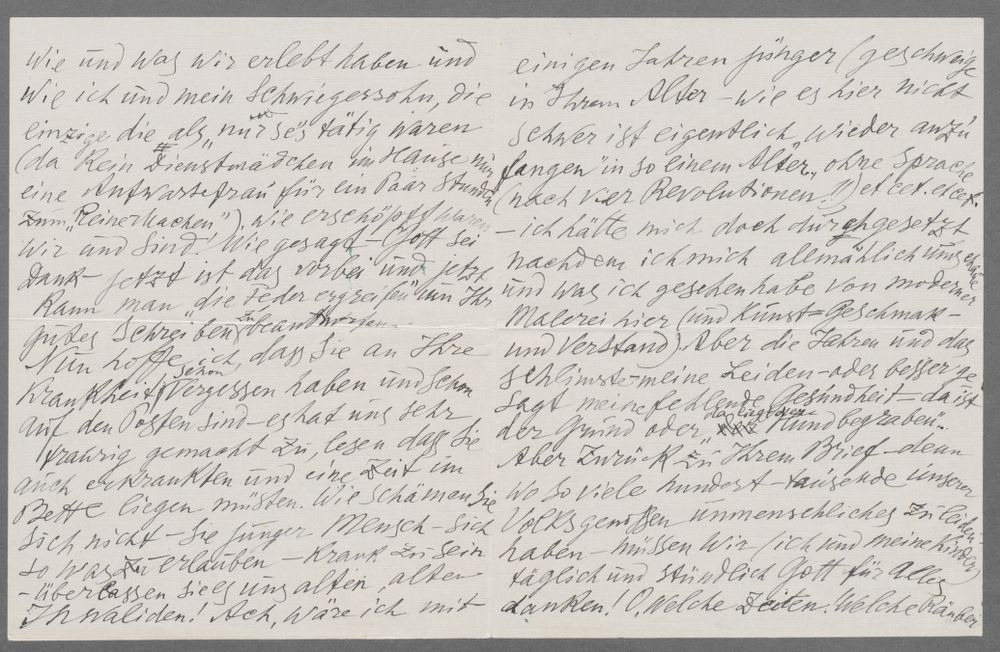 wie und was wir erlebt haben und
wie ich und mein Schwiegersohn, die
einzige, die als „nurse's tätig waren
(da kein Dienstmädchen im Hause nur
eine Aufwartefrau für ein Paar Stunden
zum „Reinermachen"). Wie erschöpft waren
wir und sind! Wie gesagt – Gott sei
Dank – jetzt ist das vorbei und jetzt
kann man „die Feder ergreifen" um Ihr
gutes Schreiben zu beantworten.
Nun hoffe ich, dass Sie an Ihre
Krankheit schon vergessen haben und schon
auf den Posten sind – es hat uns sehr
traurig gemacht zu lesen dass Sie
auch erkrankten und eine Zeit im
Bette liegen müsten. Wie schämen Sie
sich nicht – Sie junger Mensch – sich
so was zu erlauben – krank zu sein
– überlassen Sie es uns alten, alten
Invaliden! Ach, wäre ich mit
einigen Jahren jünger (geschweige
in Ihrem Alter – wie es hier nicht
schwer ist eigentlich „wieder anzu
fangen" in so einem Alter, ohne Sprache
(nach vier Revolutionen!!) et cet. et cet.
– ich hätte mich doch durchgesetzt
nachdem ich mich allmählich umschaue
und was ich gesehen habe von moderner
Malerei hier (und Kunst=Geschmak –
und Verstand). Aber die Jahren und das
schlimste – meine Leiden – oder besser ge
sagt meine fehlende Gesundheit – da ist
der Grund oder „da liegt der Hund begraben".
Aber zurück zu Ihrem Brief – denn
wo so viele hundert – tausende unserer
Volksgenossen unmenschliches zu leiden
haben – müssen wir (ich und meine Kinder)
täglich und stündlich Gott für Alles
danken! O, welche Zeiten! Welche Räuber